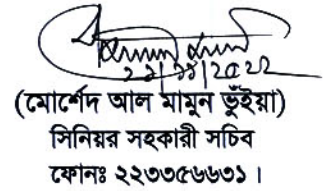 ২১/১১/২০২২
(মোর্শেদ আল মামুন ভূঁইয়া)
সিনিয়র সহকারী সচিব
ফোনঃ ২২৩৩৫৬৬৩১ ।